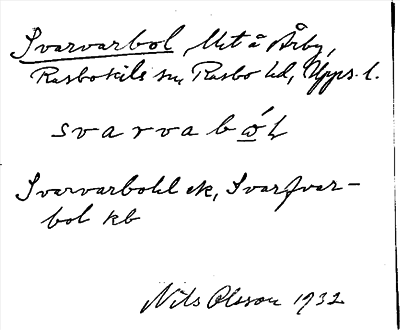 Svarvarbol, Utt å Årby,
Rasbokils sn, Rasbo hd, Upps. l.
svarvabώ̲L
Svarvarbohl ek, Svarfvar-
bol kb
Nils Olsson 1932